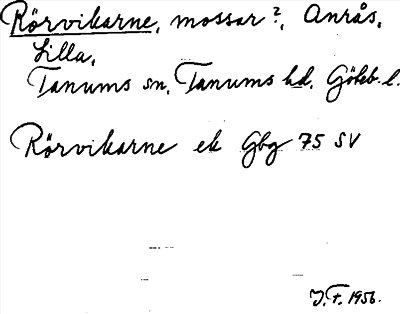 Rörvikarne, mossar?, Anrås,
Lilla,
Tanums sn, Tanums hd. Göteb. l.
Rörvikarne ek Gbg 75 SV
J.F. 1956.